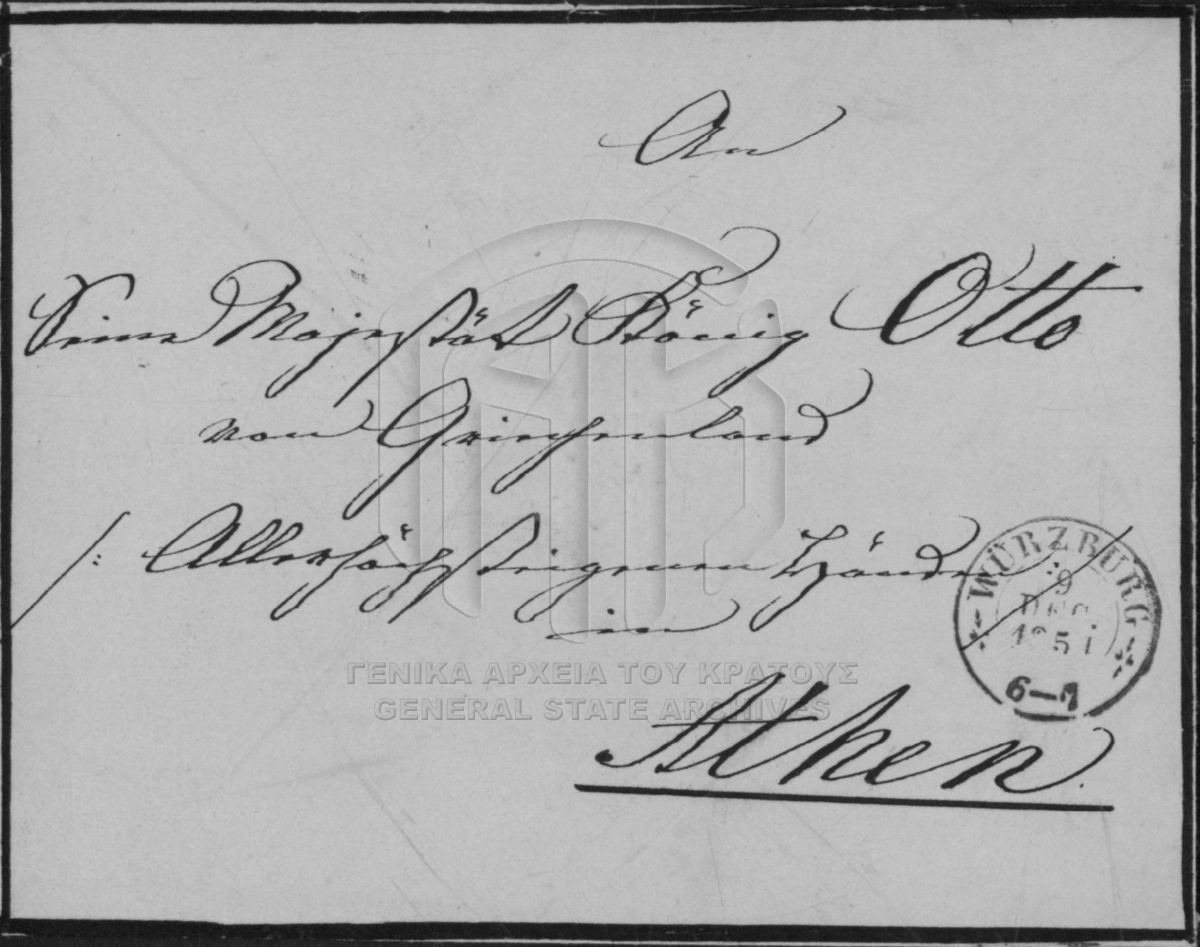 An
Seine Majestät König Otto
von Griechenland
/: Allerhöchsteigenen Händen
in
Athen.
WÜRZBURG
9
DEC.
185
6—7
ΓΕΝΙΚΑ ΑΡΧΕΙΑ ΤΟΥ ΚΡΑΤΟΥΣ
GENERAL STATE ARCHIVES